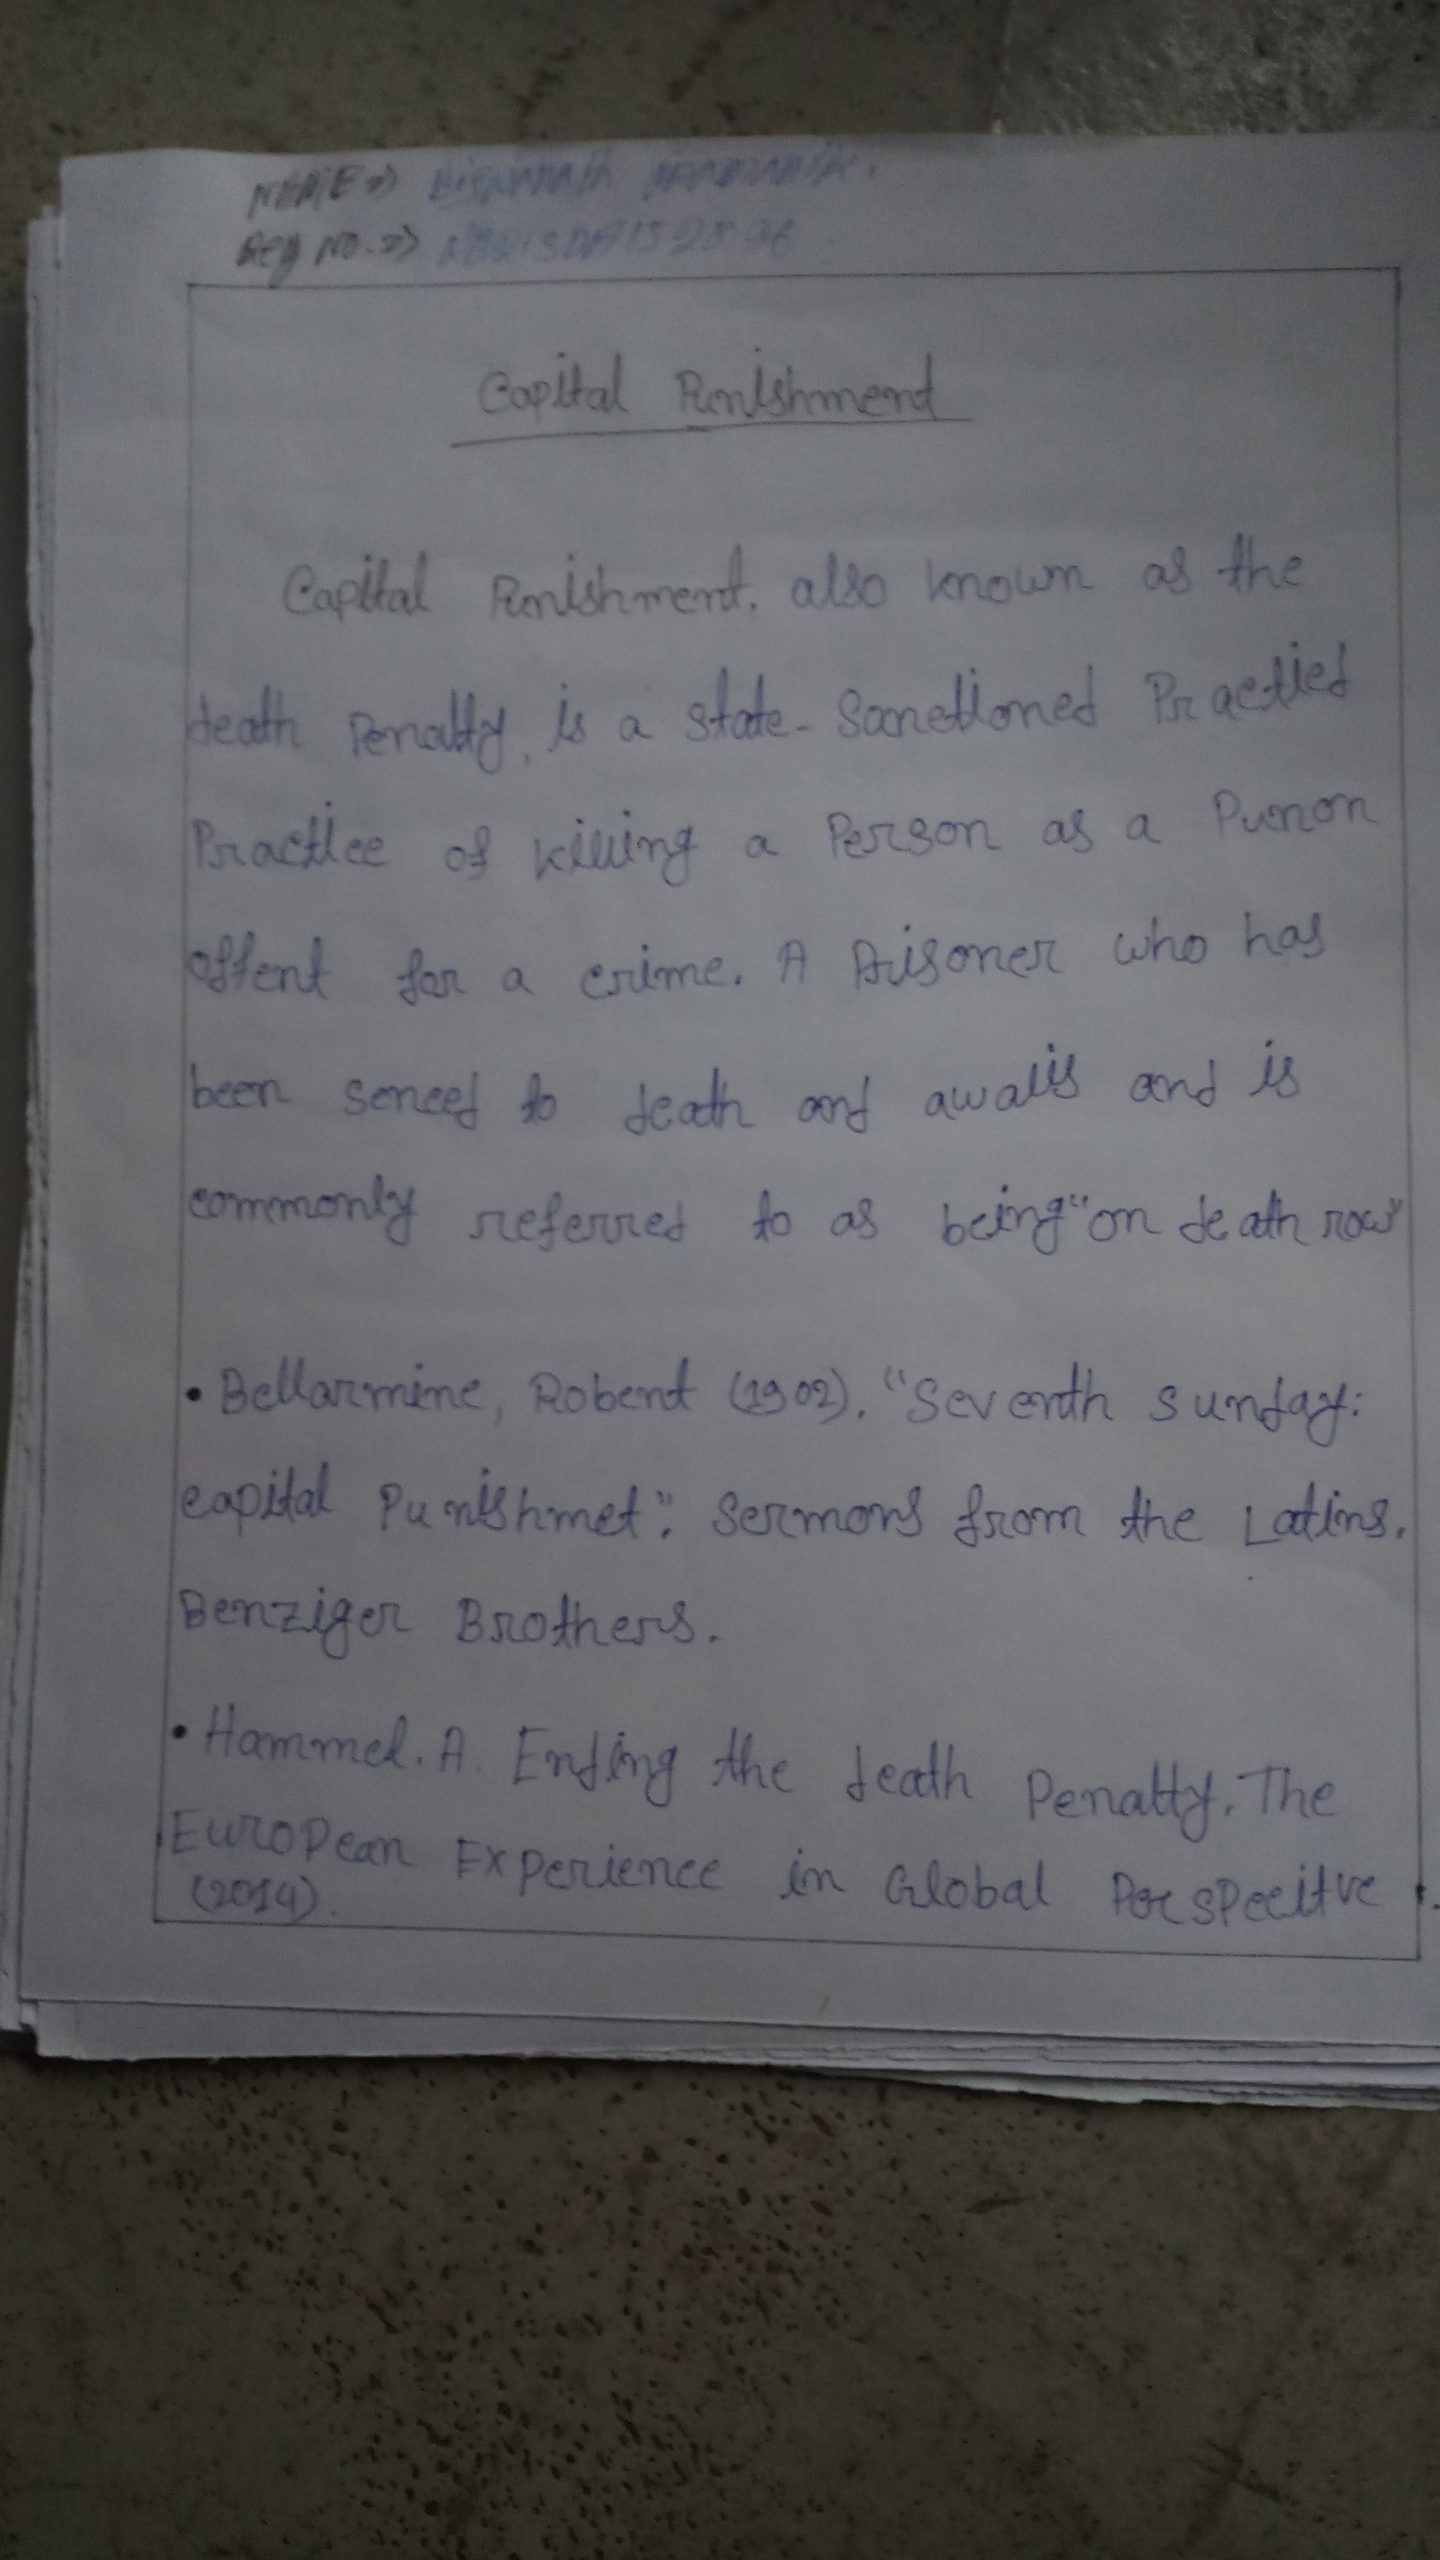 NAME =>
Reg No. =>
Capital Punishment
Capital Punishment, also known as the
death Penalty, is a state-Sanctioned Practied
Practice of killing a Person as a Punon
offent for a crime. A Prisoner who has
been senced to death and awais and is
commonly referred to as being "on death row"
• Bellarmine, Robert (1902). "Seventh Sunday:
capital Punishmet". Sermons from the Latins.
Benziger Brothers.
• Hammel. A. Ending the death Penalty. The
European Experience in Global Perspecitve.
(2014).